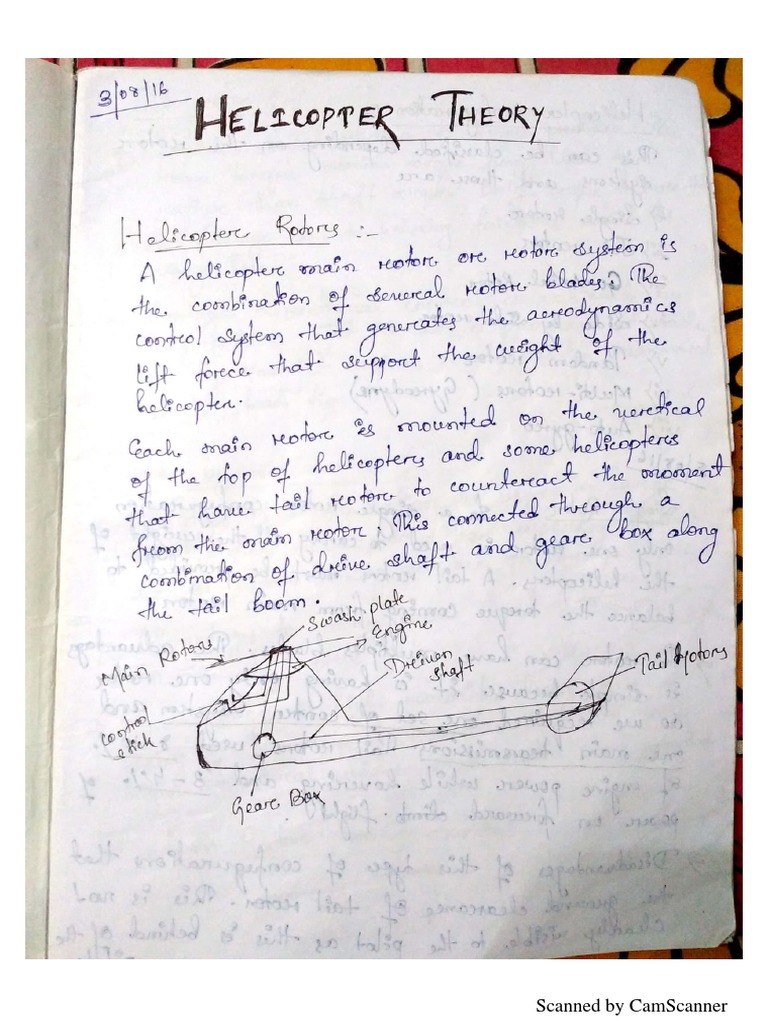 3/08/16
HELICOPTER THEORY
Helicopter Rotors :-
A helicopter main rotor or rotor system is
the combination of several rotor blades. The
control system that generates the aerodynamics
lift force that support the weight of the
helicopter.
Each main rotor is mounted on the vertical
of the top of helicopters and some helicopters
that have tail rotor to counteract the moment
from the main rotor. This connected through a
combination of drive shaft and gear box along
the tail boom.
Swash plate
Engine
Main Rotors
Driven
shaft
Tail rotors
control
stick
Gear Box
Scanned by CamScanner